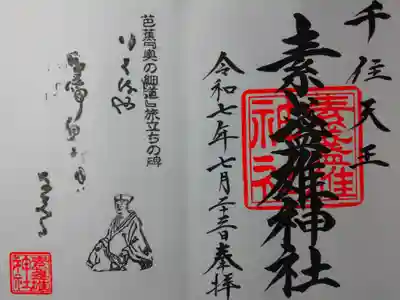 千住天王
素盞雄神社
令和七年七月二十三日奉拝
芭蕉『奥の細道』旅立ちの碑
行く春や
素盞雄神社